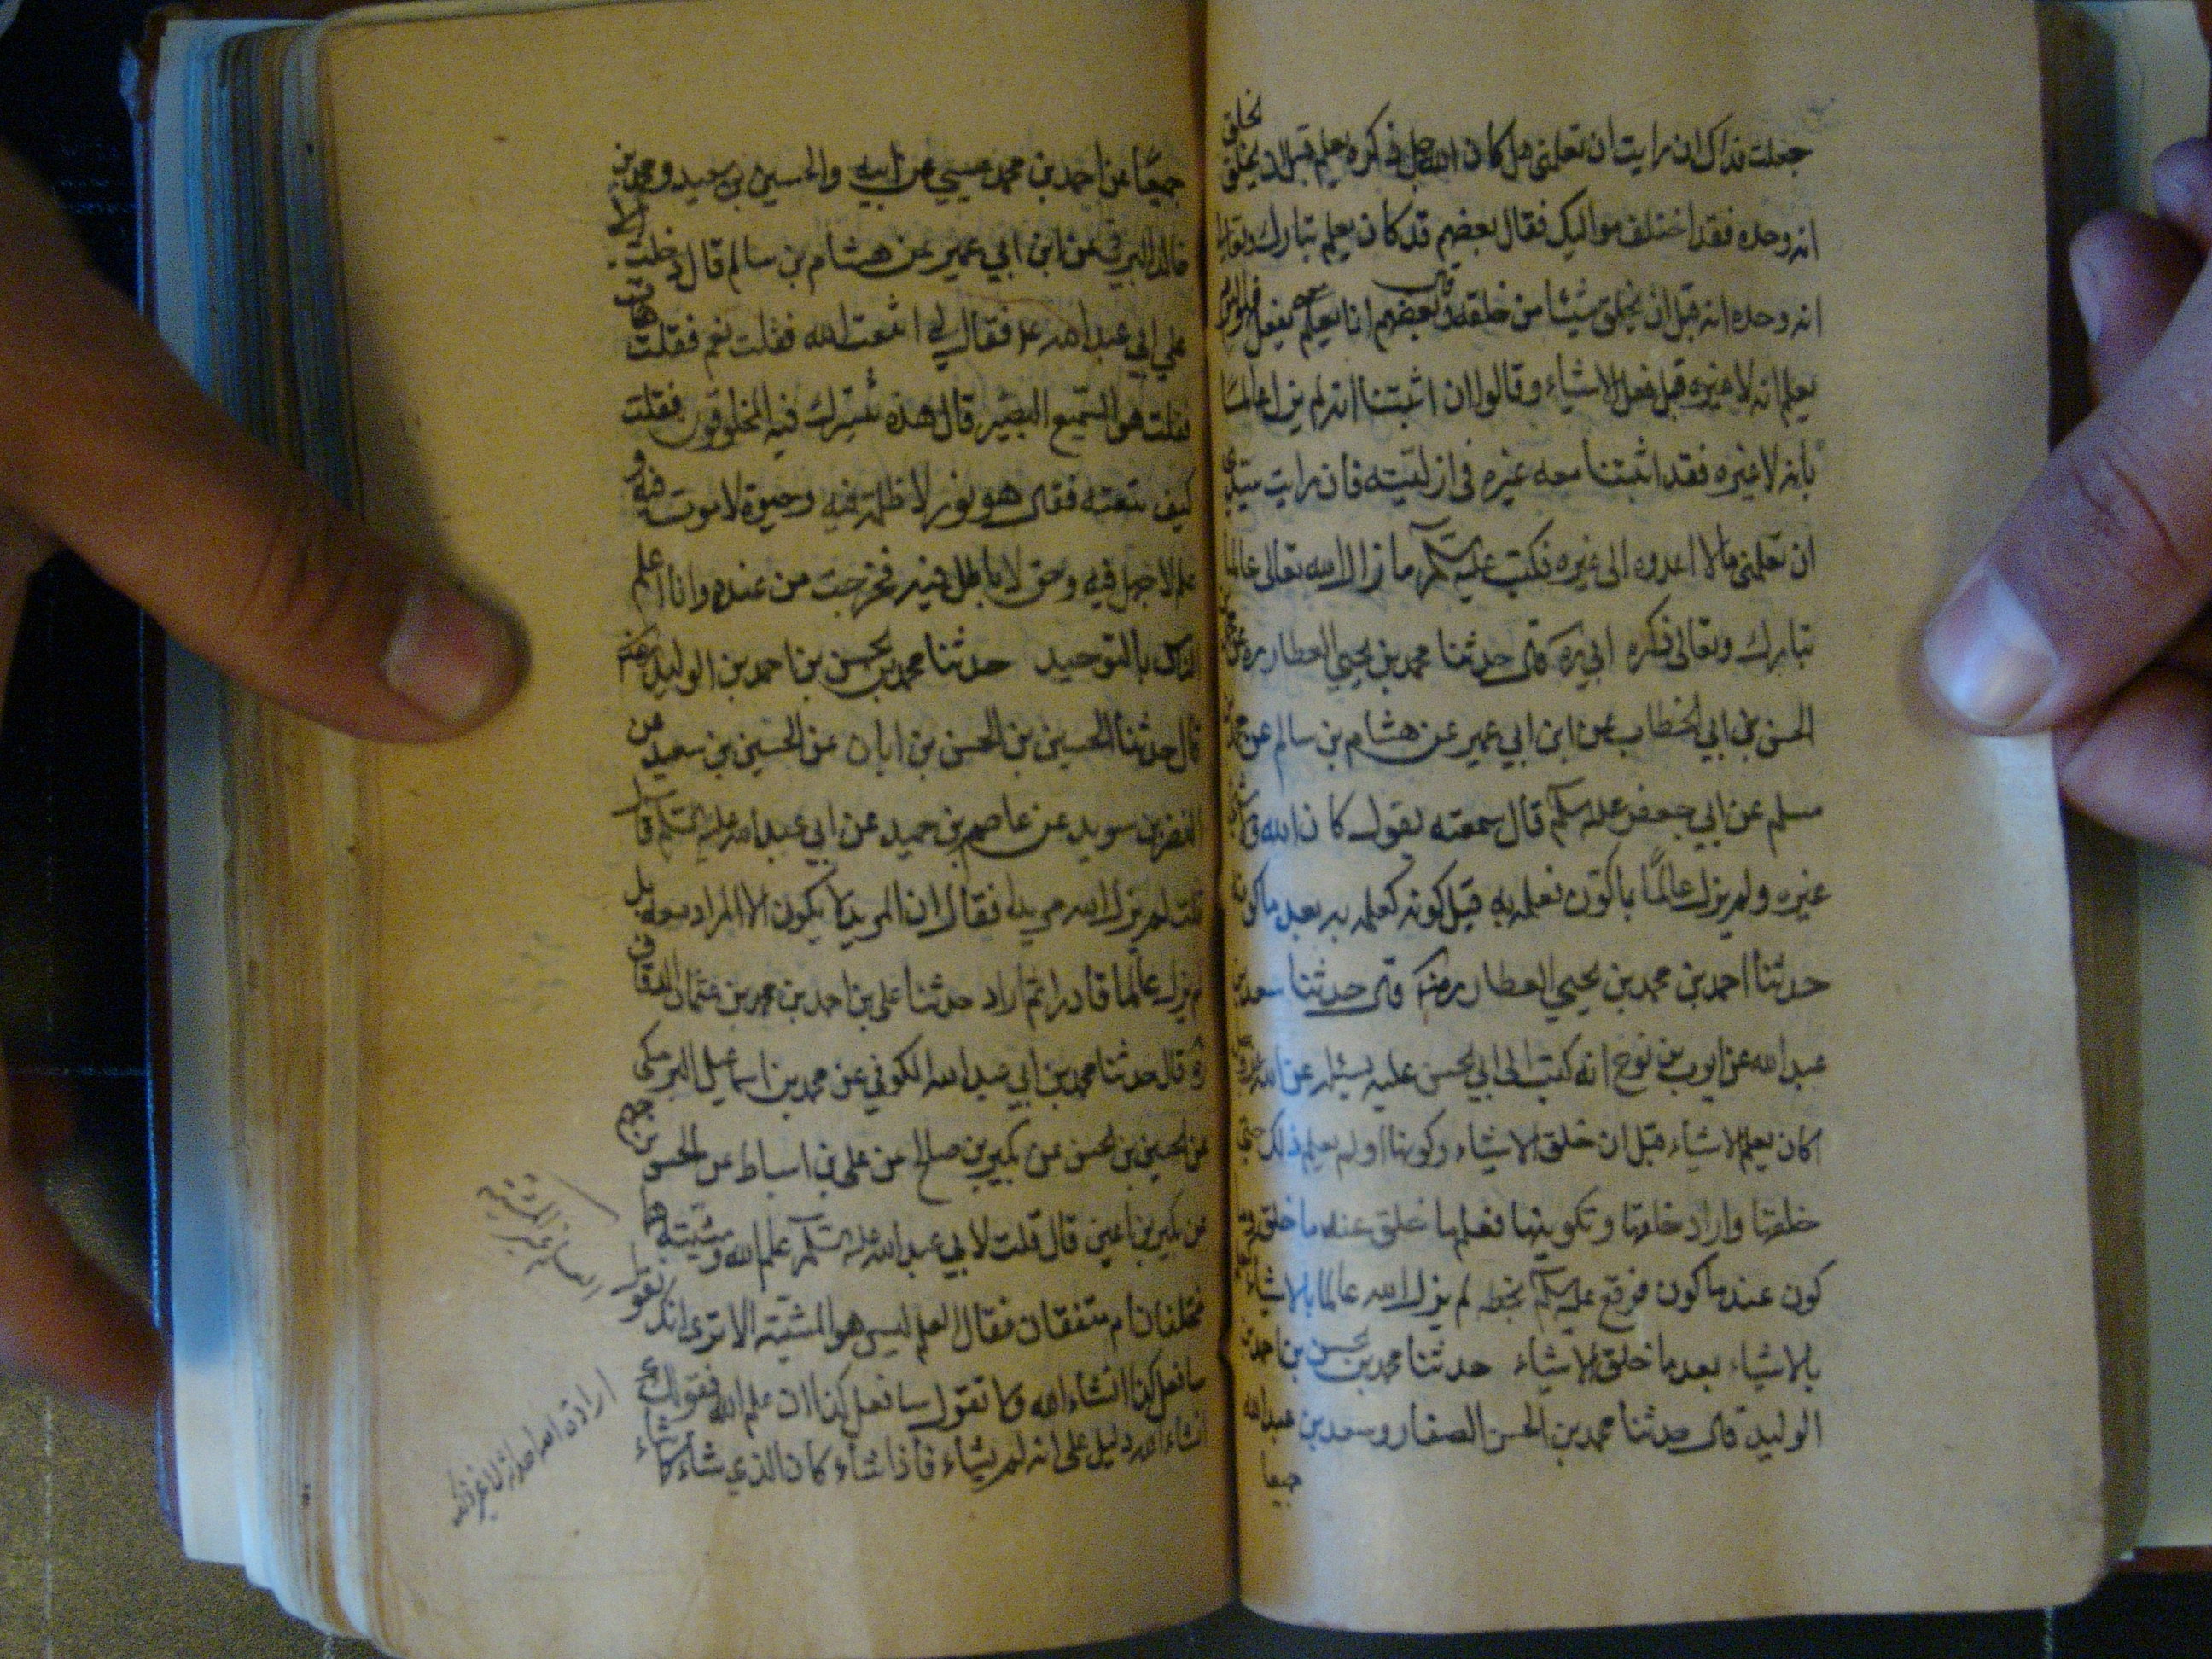 جعلت فداك ان رايت ان تعلمنى هل كان الله جل ذكره يعلم قبل ان يخلق الخلق
انه وحده فقد اختلف مواليك فقال بعضهم قد كان يعلم تبارك وتعالى
انه وحده انه قبل ان يخلق شيئا من خلقه وقال بعضهم انما يعلم يفعل فهو اليوم
يعلم انه لا غيره قبل فعل الاشياء وقالوا ان اثبتنا انه لم يزل عالما
بانه لا غيره فقد اثبتنا معه غيره فى ازليته فان رايت سيدى
ان تعلمنى مالا اعدوه الى غيره فكتب عليه السلام ما زال الله تعالى عالما
تبارك وتعالى ذكره ابى ره قال حدثنا محمد بن يحيى العطار ره عن محمد بن
الحسن بن ابي الخطاب عن ابن ابي عمير عن هشام بن سالم عن محمد بن
مسلم عن ابي جعفر عليه السلام قال سمعته يقول كان الله ولا شئ
غيره ولم يزل عالمًا بما كوّن فعلمه به قبل كونه كعلمه به بعد ما كونه
حدثنا احمد بن محمد بن يحيى العطار رضى الله عنه قال حدثنا سعد بن
عبد الله عن ايوب بن نوح انه كتب الى ابي الحسن عليه يسئله عن الله عز وجل
اكان يعلم الاشياء قبل ان خلق الاشياء وكونها او لم يعلم ذلك حتى
خلقها واراد خلقها وتكوينها فعلم ما خلق عند ما خلق وما
كون عند ما كون فوقع عليه السلام بخطه لم يزل الله عالما بالاشياء
بالاشياء بعد ما خلق الاشياء حدثنا محمد بن الحسن بن احمد بن
الوليد قال حدثنا محمد بن الحسن الصفار وسعد بن عبد الله
جميعا
جميعًا عن احمد بن محمد عيسى عن ابيه والحسين بن سعيد ومحمد بن
خالد البرقي عن ابن ابي عمير عن هشام بن سالم قال دخلت
على ابي عبد الله ع فقال لي اتنعت الله فقلت نعم فقلت
فقلت هو السميع البصير قال هذه تشترك فيه المخلوقون فقلت
كيف تنعته فقال هو نور لا ظلمة فيه وحيوة لا موت فيه و
علم لا جهل فيه وحق لا باطل فيه فخرجت من عنده وانا اعلم
الناس بالتوحيد حدثنا محمد بن الحسن بن احمد بن الوليد رضى الله عنه
قال حدثنا الحسين بن الحسن بن ابان عن الحسين بن سعيد عن
النضر بن سويد عن عاصم بن حميد عن ابي عبد الله عليه السلام قال
قلت لم يزل الله مريدا فقال ان المريد لا يكون الا المراد معه بل
لم يزل عالما قادرا ثم اراد حدثنا على بن احمد بن محمد بن عمران الدقاق
ره قال حدثنا محمد بن ابي عبد الله الكوفي عن محمد بن اسماعيل البرمكى
عن الحسين بن الحسن عن بكير بن صالح عن على بن اسباط عن الحسن بن جهم
عن بكير بن اعين قال قلت لابي عبد الله عليه السلام علم الله ومشيته هما
مختلفان ام متفقان فقال العلم ليس هو المشية الا ترى انك تقول
سافعل كذا انشاء الله ولا تقول سافعل كذا ان علم الله فقولك
انشاء الله دليل على انه لم يشاء فاذا شاء كان الذي شاء كما شاء